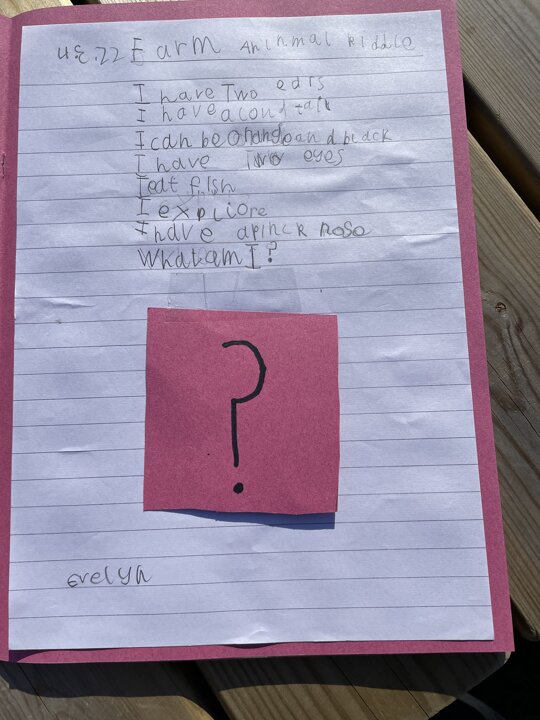 Farm Aninmal Riddle
I have Two ears
I have a tail
I can be and black
I have Two eyes
I eat fish
I expliore
I have apinck noso
What am I?
?
evelyn